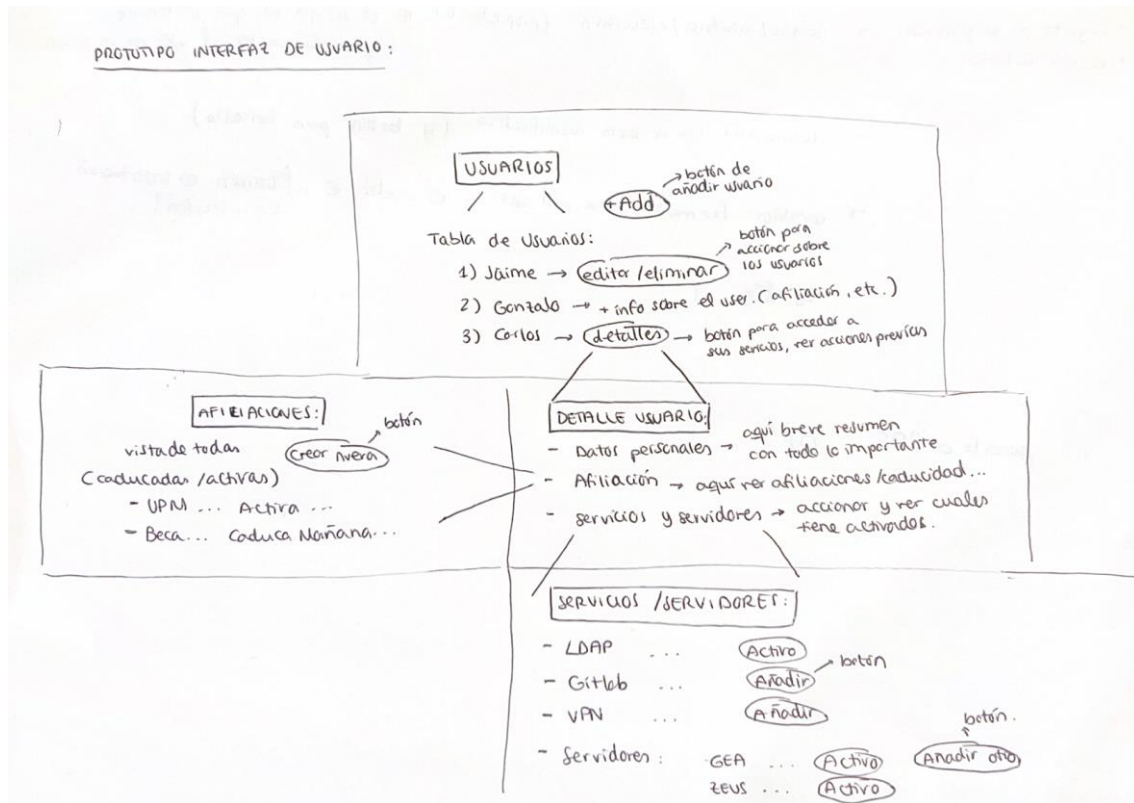 PROTOTIPO INTERFAZ DE USUARIO:
USUARIOS
+Add
→ botón de
añadir usuario
Tabla de Usuarios:
1) Jaime → editar/eliminar
botón para
accionar sobre
los usuarios
2) Gonzalo → + info sobre el user. (afiliación, etc.)
3) Carlos → detalles → botón para acceder a
sus servicios, ver acciones previas
AFILIACIONES:
vista de todas
Crear nueva
botón
(caducadas/activas)
- UPM ... Activa ...
- Beca... Caduca Mañana...
DETALLE USUARIO:
- Datos personales → aquí breve resumen
con todo lo importante
- Afiliación → aquí ver afiliaciones/caducidad...
- servicios y servidores → accionar y ver cuales
tiene activados.
SERVICIOS/SERVIDORES:
- LDAP ... Activo
- GitLab ... Añadir → botón
- VPN ... Añadir
- Servidores: GEA ... Activo
botón.
Añadir otro
ZEUS ... Activo